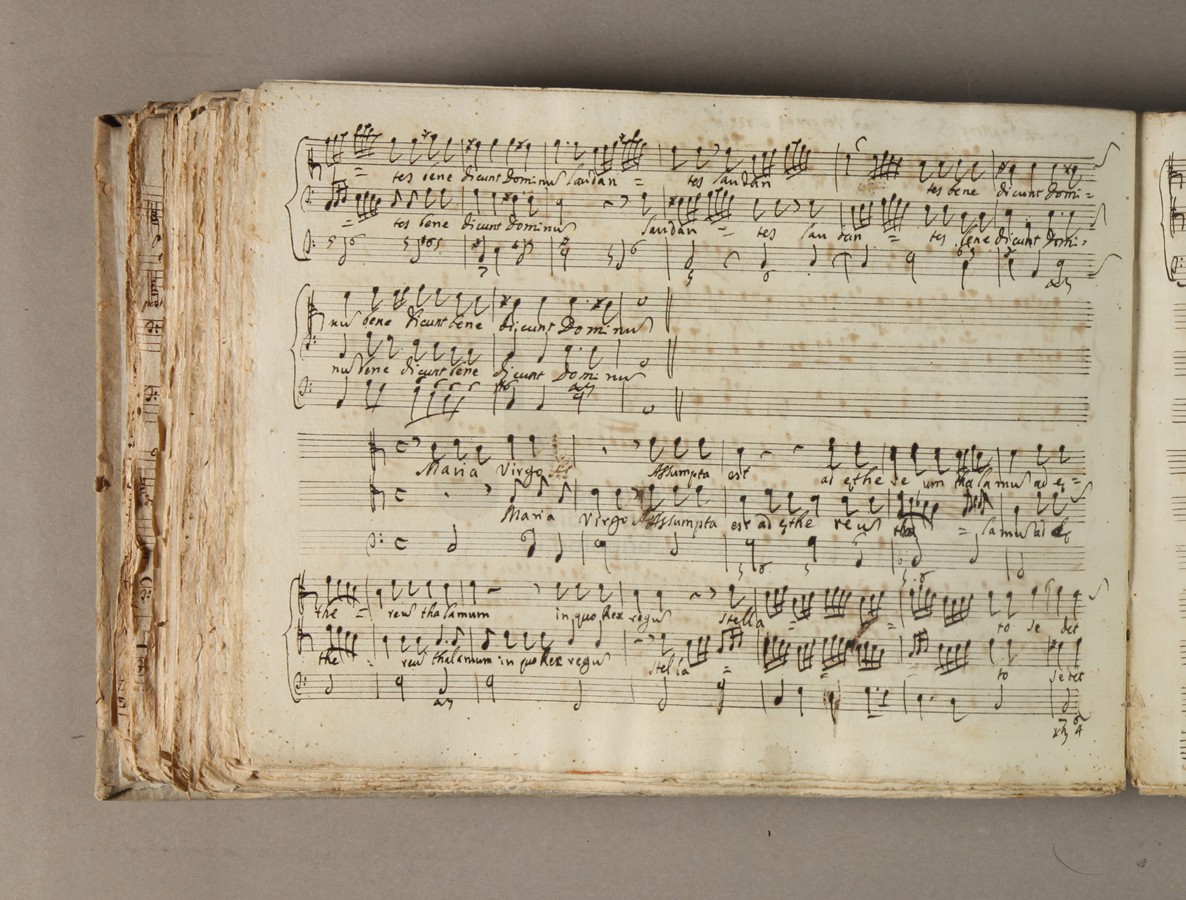 = tes bene dicunt Dominu laudan = tes laudan tes bene dicunt Domi=
= tes bene dicunt Dominu laudan = tes lau dan = tes bene dicunt Domi:
nu bene dicunt bene dicunt Dominu
nu bene dicunt bene dicunt Dominu
Maria Virgo Assumpta est ad ethe re um tha lamu ad e=
Maria Virgo Assumpta est ad ethe reu tha = lamu ad e
the = reu thalamum in quo Rex regu stella = = to se det
the : reu thalamum in quo Rex regu stella = = to sedet